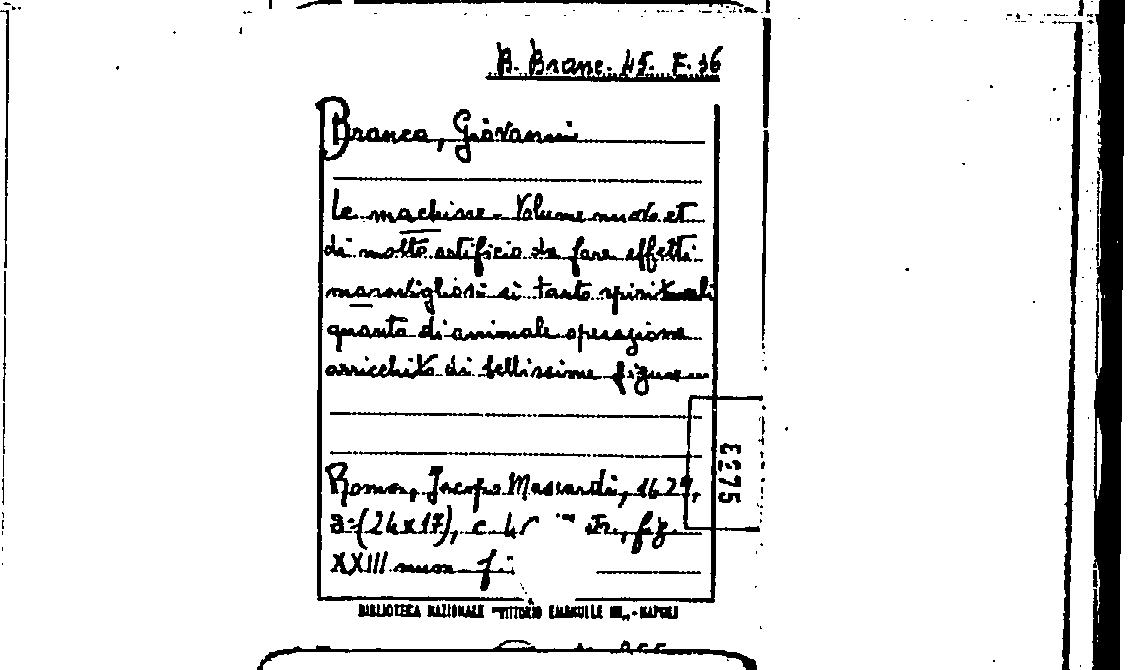 B. Branc. 45. F. 36
Branca, Giovanni
Le machine. Volume nuovo et
di molto artificio da fare effetti
maravigliosi si tanto spiritali
quanto di animale operazione
arricchito di bellissime figure
Roma, Jacopo Mascardi, 1629,
8º (24x17), c.
fig.
XXIII num.
BIBLIOTECA NAZIONALE "VITTORIO EMANUELE III" - NAPOLI
3275